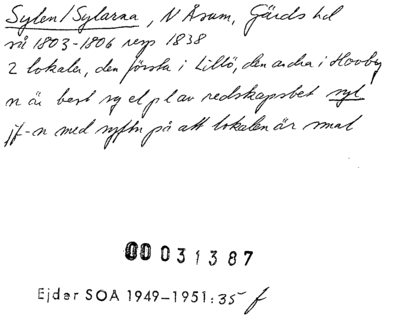 Sylen/Sylarna, N Åsum, Gärds hd
så 1803-1806 resp 1838
2 lokaler, den första i Lillö, den andra i Hovby
n är best sg el pl av redskapsbet syl
jf-n med syftn på att lokalen är smal
00031387
Ejder SOA 1949-1951:35 f